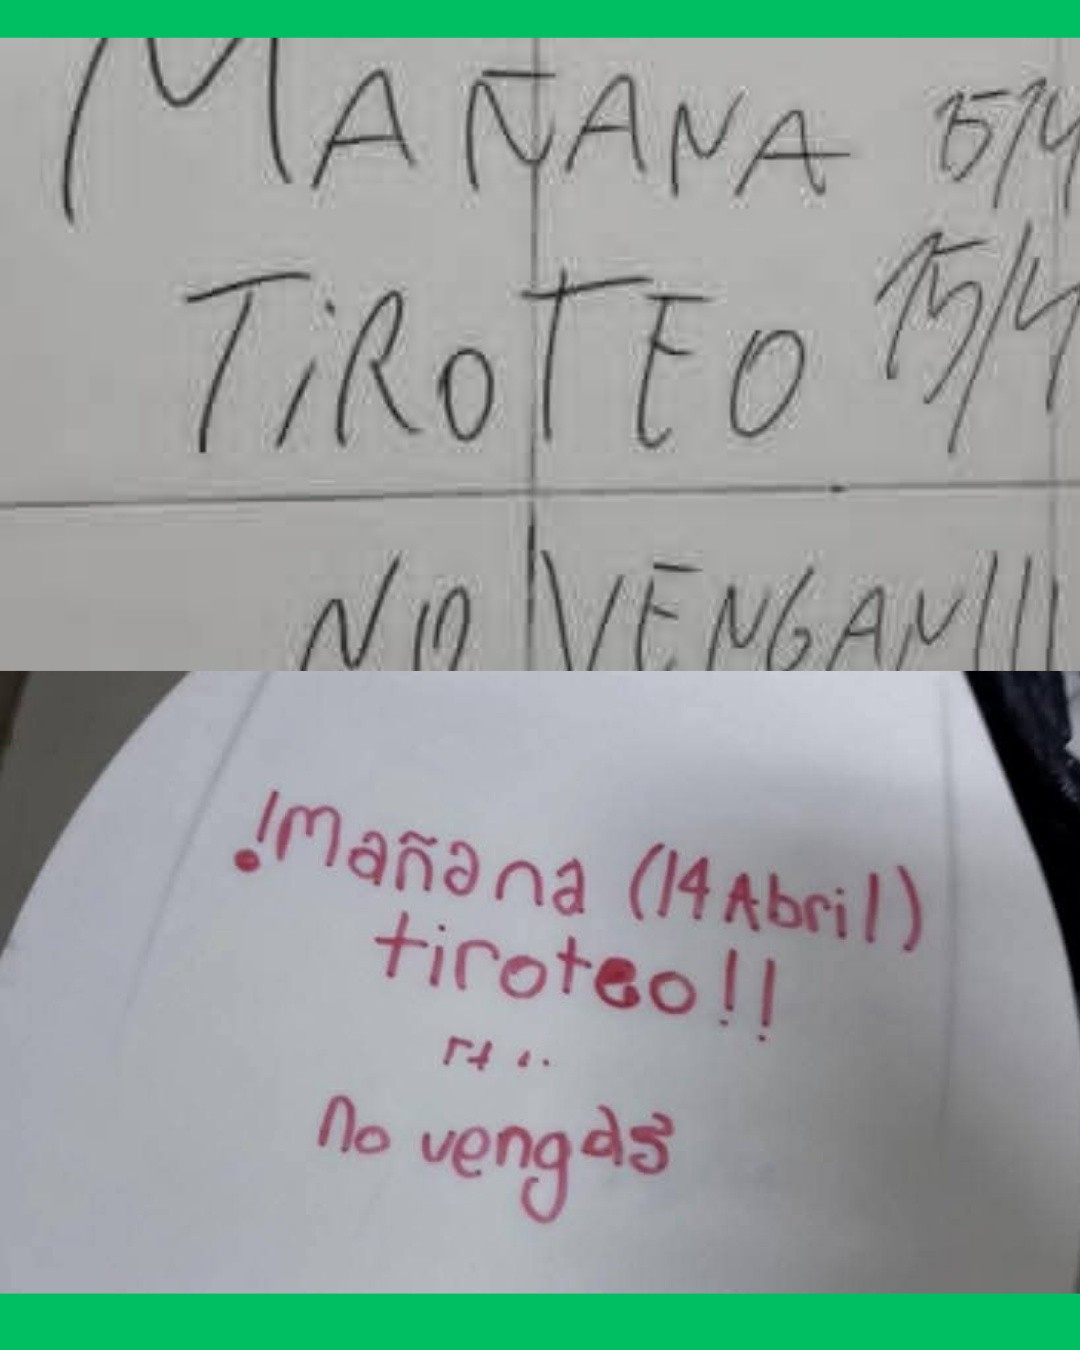 MAÑANA 15/4
TIROTEO 15/4
NO VENGAN!!!
¡Mañana (14 Abril)
tiroteo!!
No vengas